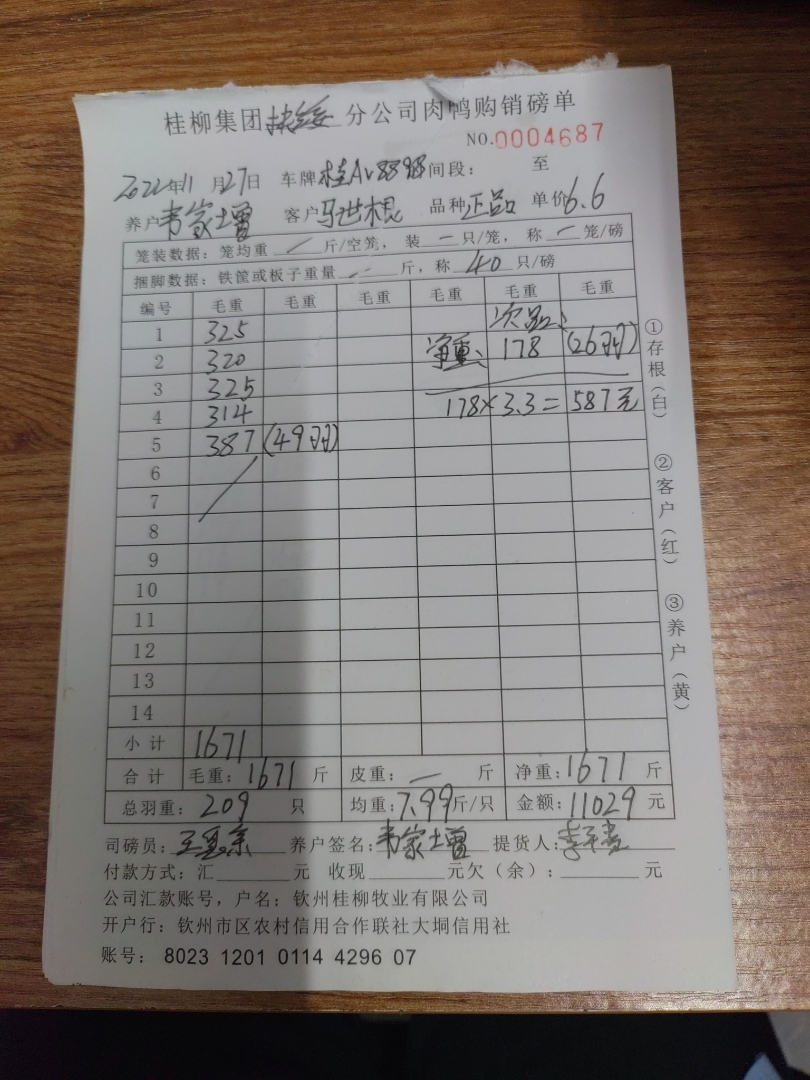 桂柳集团扶绥分公司肉鸭购销磅单
NO.0004687
2022年11月27日 车牌桂A 间段： 至
养户韦家增 客户马世根 品种正品 单价6.6
笼装数据：笼均重 / 斤/空笼，装 一 只/笼，称 一 笼/磅
捆脚数据：铁筐或板子重量 一 斤，称 40 只/磅
编号 毛重 毛重 毛重 毛重 毛重 毛重
1 325 次品：
2 320 净重： 178 (26羽)
3 325
4 314 178×3.3=587元
5 387 (49羽)
6
7
8
9
10
11
12
13
14
小计 1671
合计 毛重：1671 斤 皮重：一 斤 净重：1671 斤
总羽重：209 只 均重：7.99斤/只 金额：11029 元
司磅员： 养户签名：韦家增 提货人：
付款方式：汇 元 收现 元欠（余）： 元
公司汇款账号，户名：钦州桂柳牧业有限公司
开户行：钦州市区农村信用合作联社大垌信用社
账号： 8023 1201 0114 4296 07
①存根（白）
②客户（红）
③养户（黄）